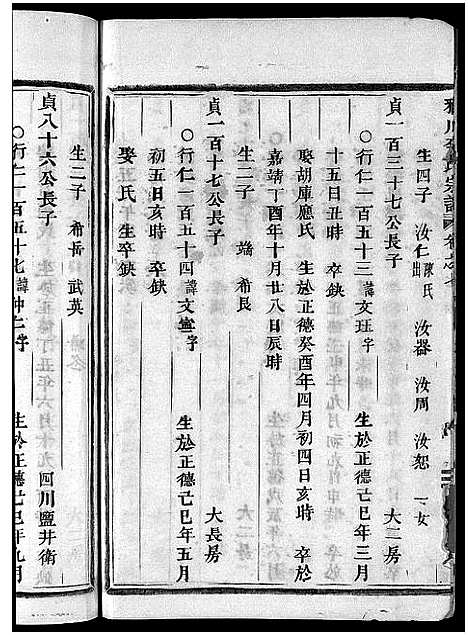 生四子 汝仁陳氏出 汝器 汝周 汝恕 一女
貞一百三十七公長子 大二房
○行仁一百五十三諱文珏字 生於正德己巳年三月
十五日丑時 卒缺
娶胡庫應氏 生於正德癸酉年四月初四日亥時 卒於
嘉靖丁酉年十月廿八日辰時
生二子 端 希長
貞一百十七公長子 大長房
○行仁一百五十四諱文 字 生於正德己巳年五月
初五日亥時 卒缺
娶王氏生卒缺
生二子 希岳 武英
貞八十六公長子 四川鹽井衛
○行仁一百五十七諱仲仁字 生於正德己巳年九月